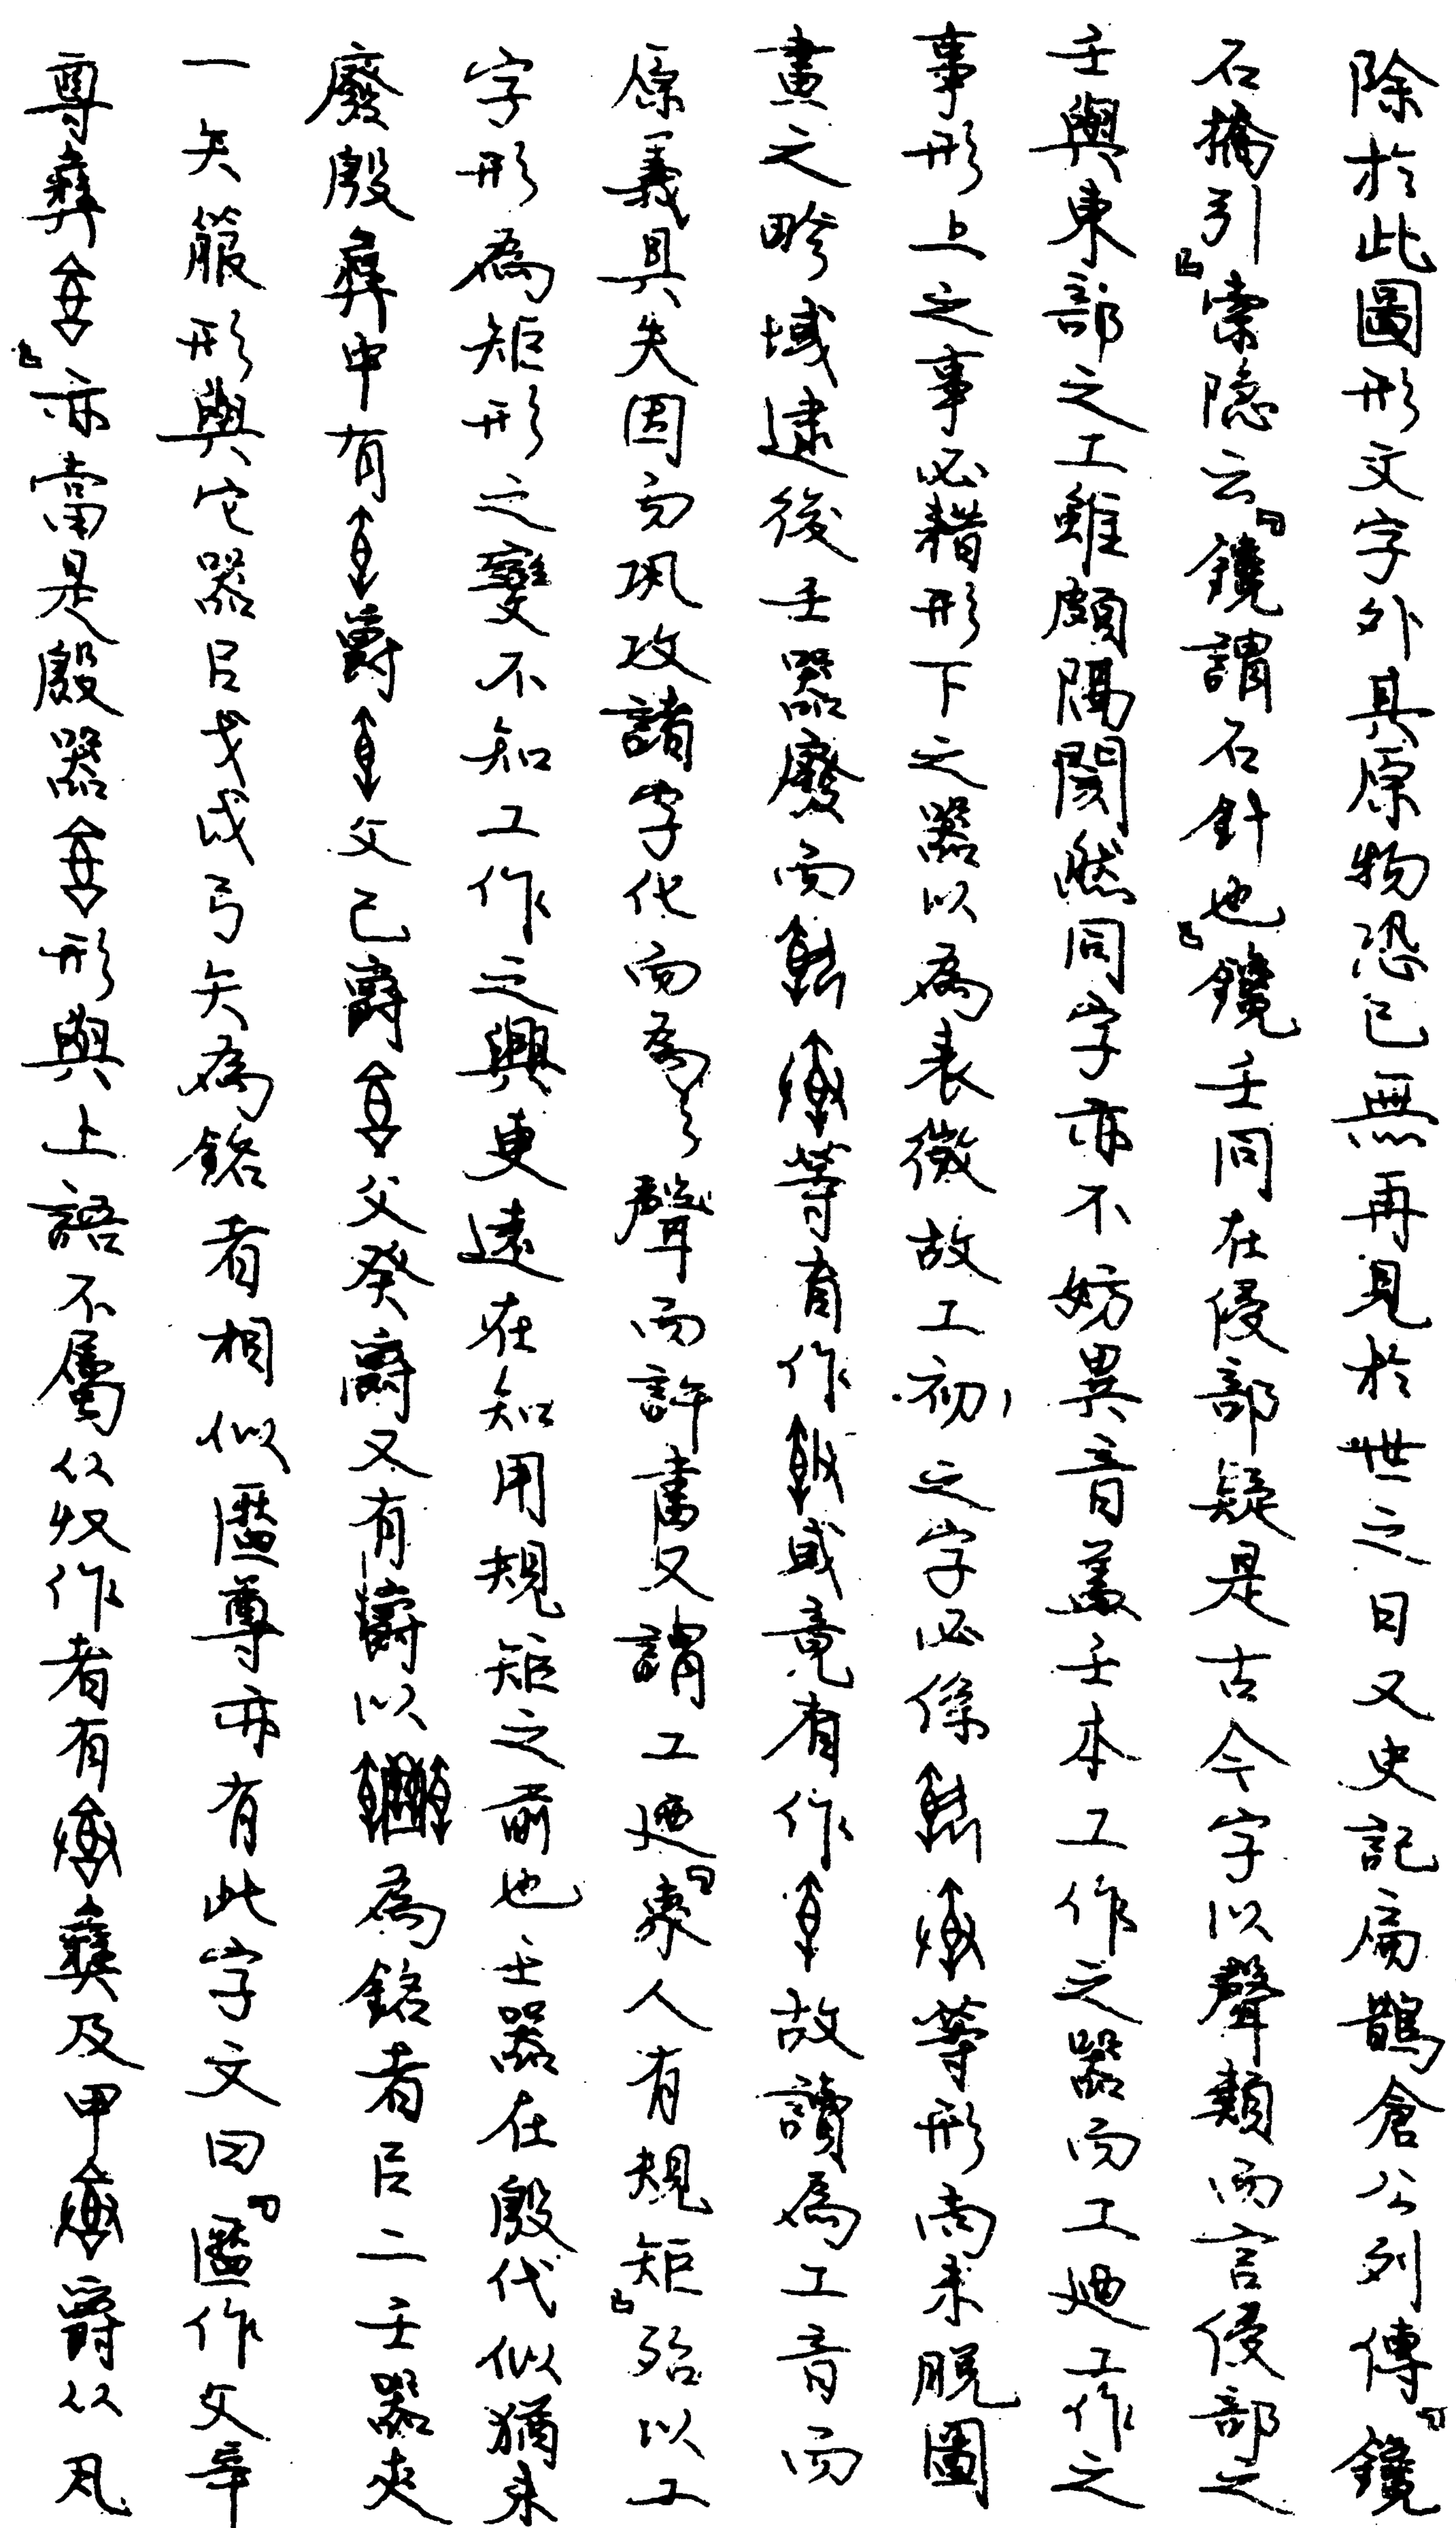 除於此圖形文字外其原物恐已無再見於世之日又史記扁鵲倉公列傳「鑱
石撟引」索隱云「鑱謂石針也」鑱壬同在侵部疑是古今字以聲類而言侵部之
壬與東部之工雖頗隔閡然同字亦不妨異音蓋壬本工作之器而工廼工作之
事形上之事必藉形下之器以為表徵故工初之字必係等形尚未脫圖
畫之畛域逮後壬器廢而等有作或竟有作故讀為工音而
原義具失因而巩攻諸字化而為聲而許書又謂工廼「象人有規矩」殆以工
字形為矩形之變不知工作之興更遠在知用規矩之前也壬器在殷代似猶未
廢殷彝中有爵父己爵父癸爵又有爵以為銘者㠯二壬器夾
一矢箙形與它器㠯戈戉弓矢為銘者相似匿尊亦有此字文曰「匿作父辛
尊彝」亦當是殷器形與上諸不屬从収作者有彝及甲爵从凡